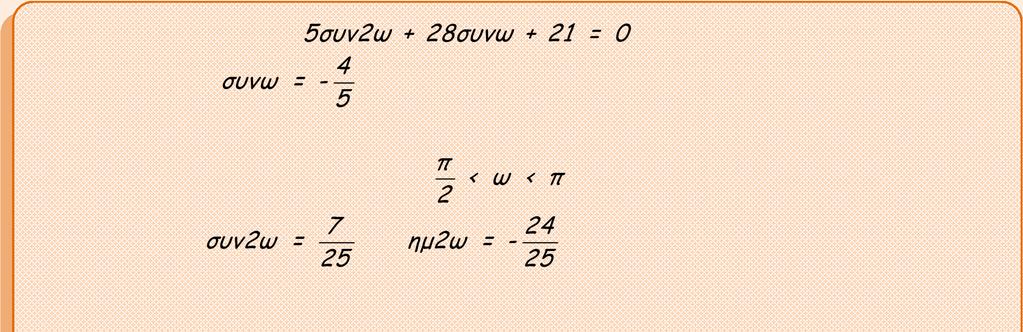 5συν2ω + 28συνω + 21 = 0
συνω = -4/5
π/2 < ω < π
συν2ω = 7/25 ημ2ω = -24/25